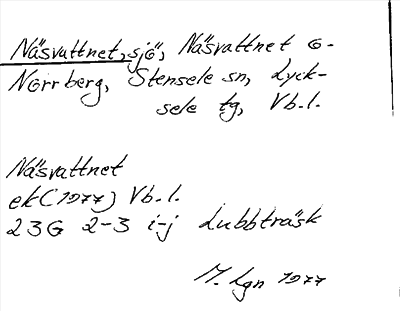 Näsvattnet, sjö, Näsvattnet o.
Norrberg, Stensele sn, Lyck-
sele tg, Vb.l.
Näsvattnet
ek (1977) Vb.l.
23G 2-3 i-j Lubbträsk
M. Lgn 1977